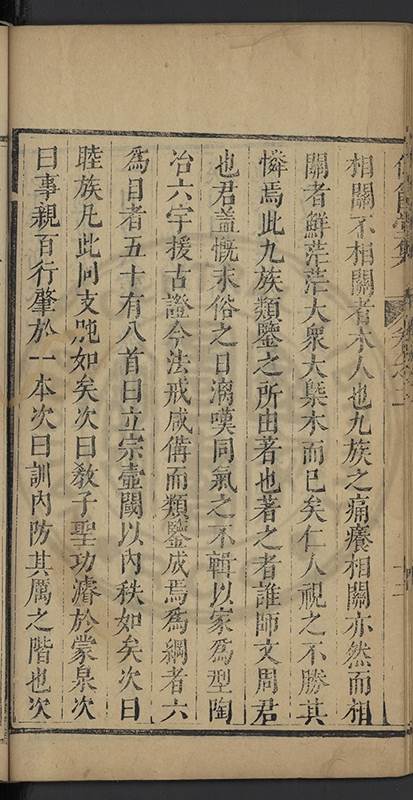 相關不相關者木人也九族之痛癢相關亦然而相
關者鮮茫茫大衆大槩木而已矣仁人視之不勝其
憐焉此九族類鑒之所由著也著之者誰師文周君
也君蓋慨末俗之日漓嘆同氣之不輯以家爲型陶
冶六宇援古證今法戒咸備而類鑒成焉爲綱者六
爲目者五十有八首曰立宗壼閾以内秩如矣次曰
睦族凡此同支虺如矣次曰敎子聖功濬於蒙泉次
曰事親百行肇於一本次曰訓内防其厲之階也次